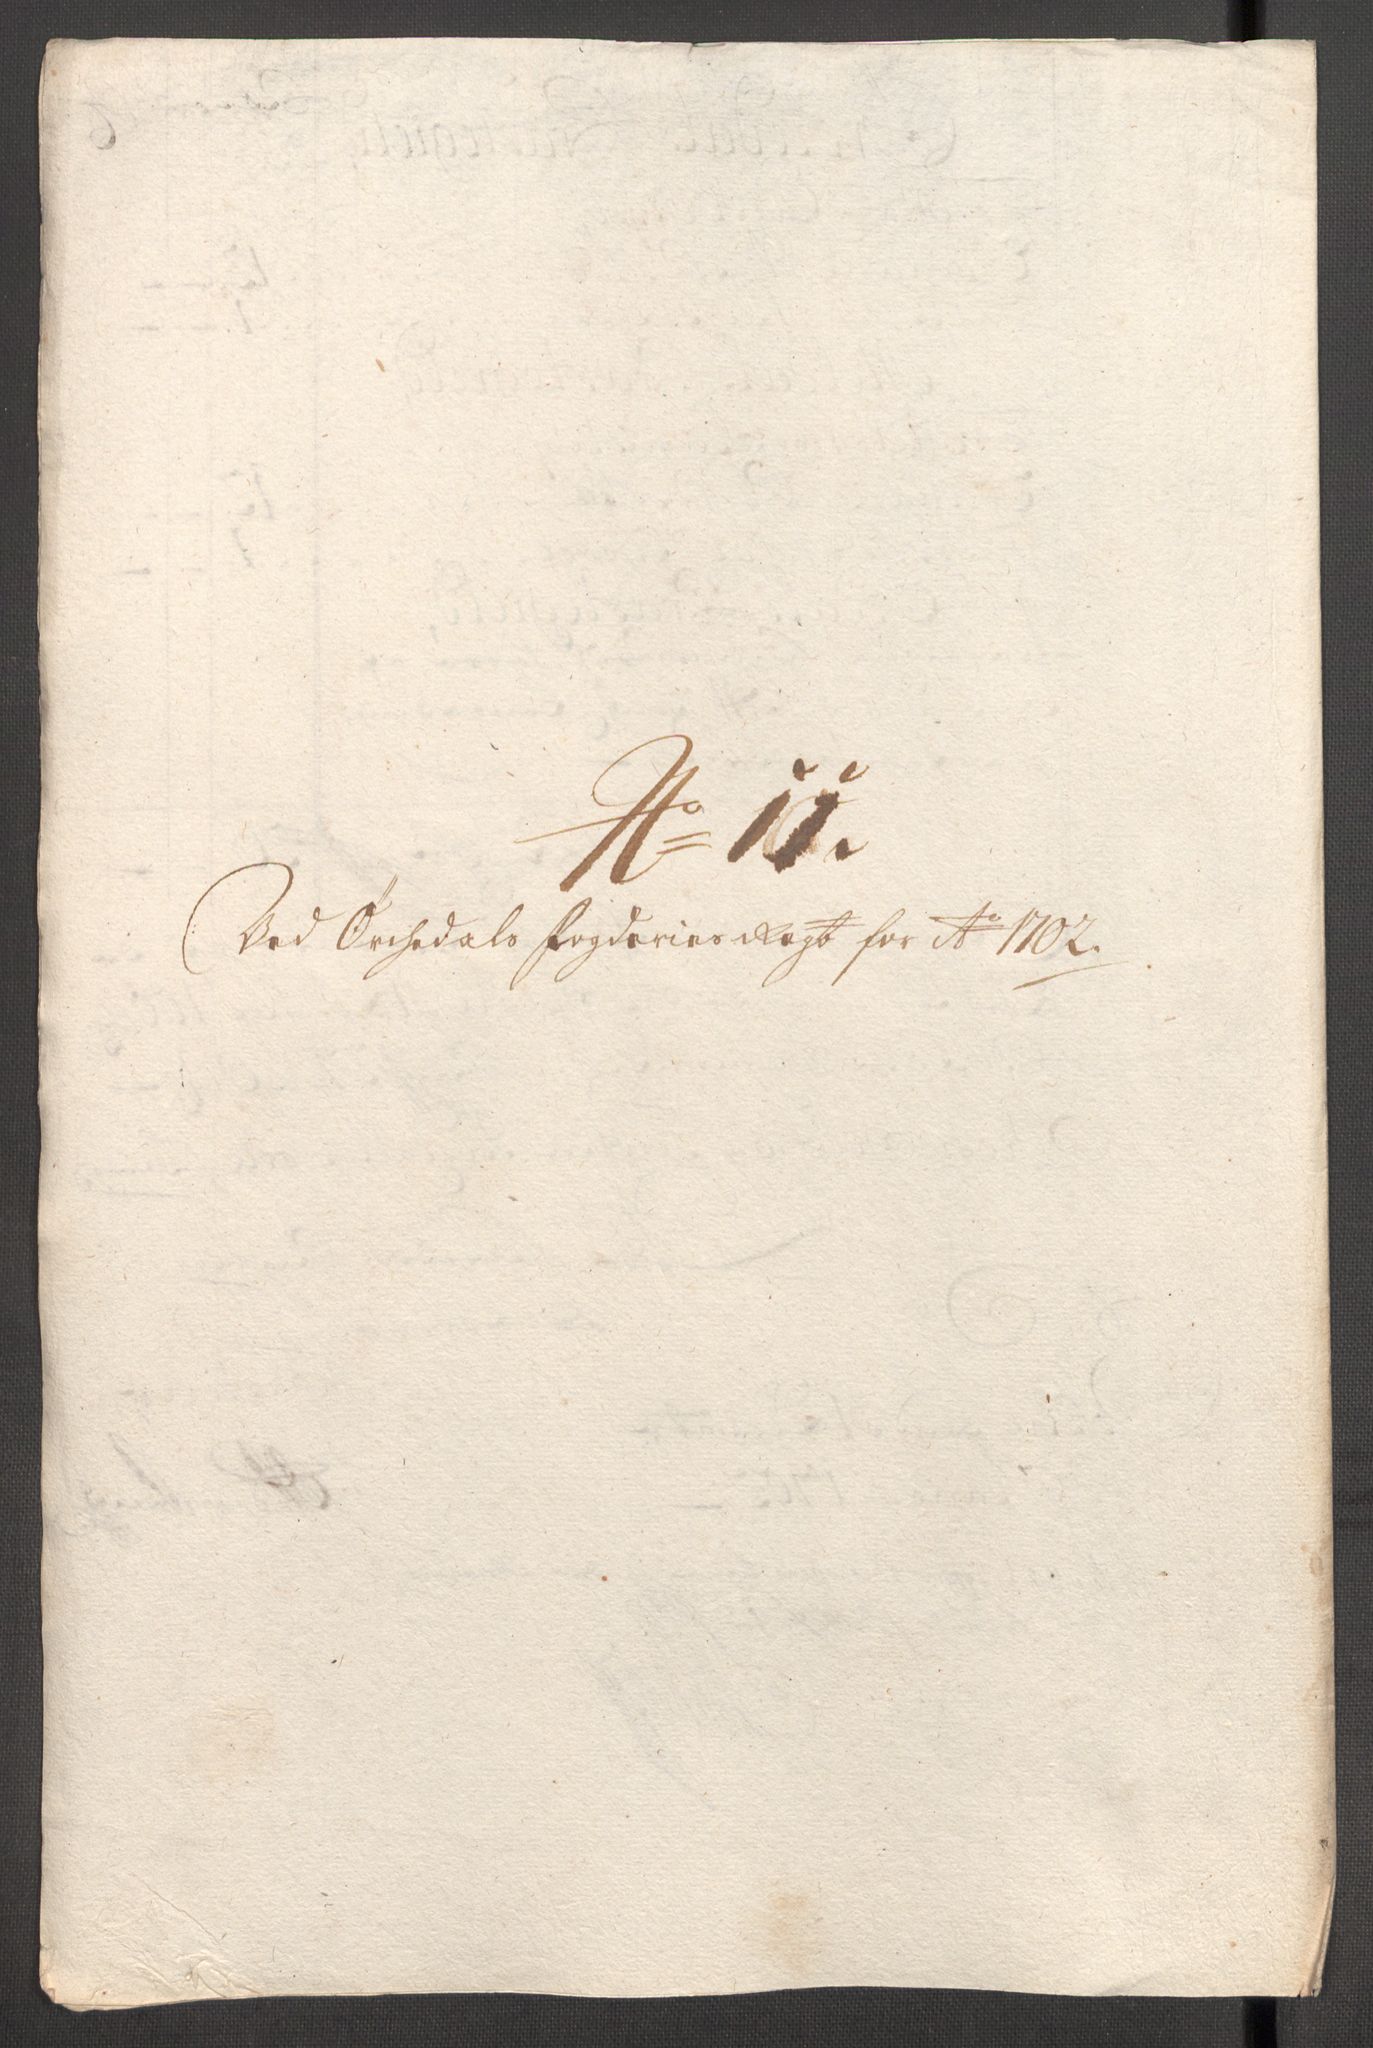 No 11.
Ved Örchedals fogderies Regb for Ao 1702.